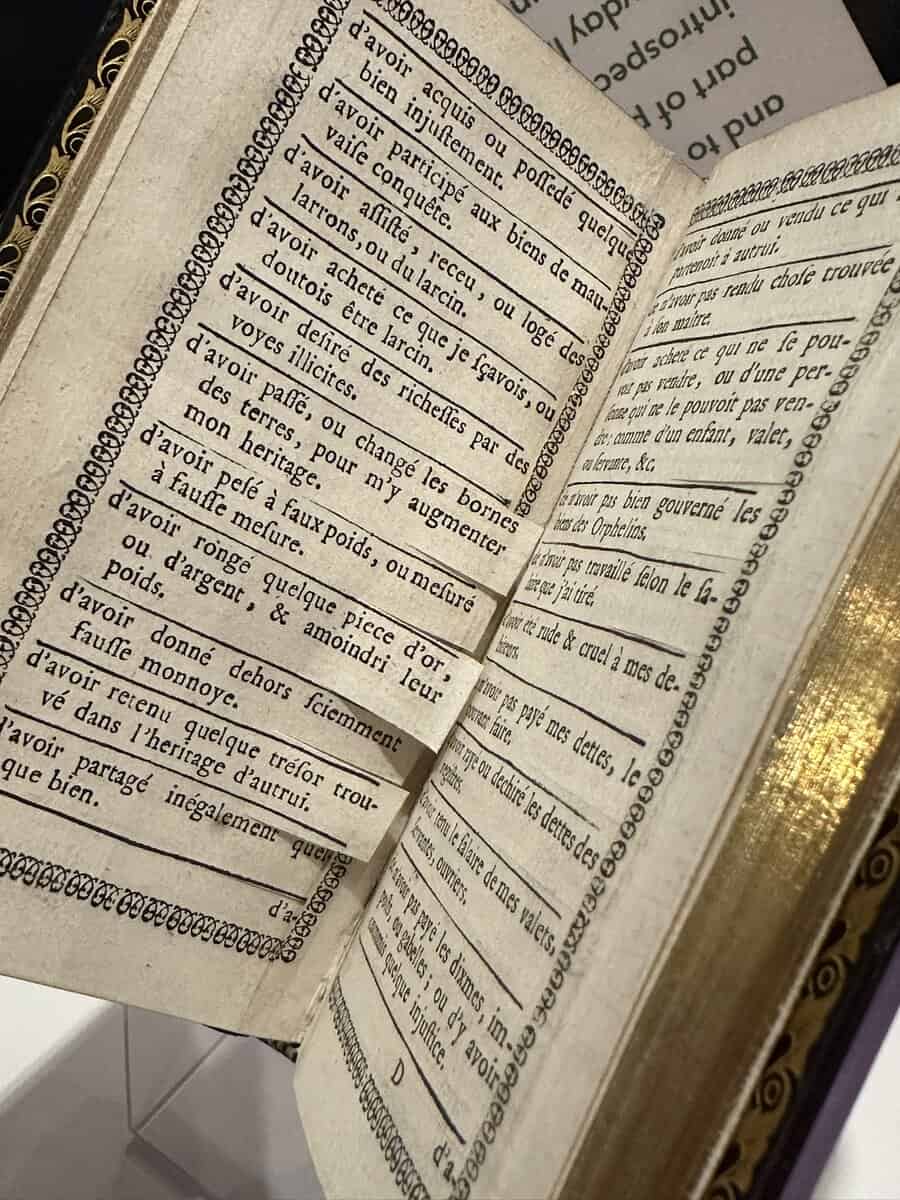 d'avoir acquis ou possedé quelque
bien injustement.
d'avoir participé aux biens de mau-
vaise conquête.
d'avoir assisté, receu, ou logé des
larrons, ou du larcin.
d'avoir acheté ce que je sçavois, ou
doutois être larcin.
d'avoir desiré des richesses par des
voyes illicites.
d'avoir passé, ou changé les bornes
des terres, pour m'y augmenter
mon heritage.
d'avoir pesé à faux poids, ou mesuré
à fausse mesure.
d'avoir rongé quelque piece d'or,
ou d'argent, & amoindri leur
poids.
d'avoir donné dehors sciemment
fausse monnoye.
d'avoir retenu quelque trésor trou-
vé dans l'heritage d'autrui.
d'avoir partagé inégalement quel
que bien.
d'a-
d'avoir donné ou vendu ce qui
partenoit à autrui.
de n'avoir pas rendu chose trouvée
à son maître.
d'avoir acheté ce qui ne se pou-
voit pas vendre, ou d'une per-
sonne qui ne le pouvoit pas ven-
dre; comme d'un enfant, valet,
ou servante, &c.
de n'avoir pas bien gouverné les
biens des Orphelins.
de n'avoir pas travaillé selon le sa-
laire que j'ai tiré.
d'avoir été rude & cruel à mes de-
biteurs.
n'avoir pas payé mes dettes, le
pouvant faire.
d'avoir rayé ou dechiré les dettes des
registres.
d'avoir retenu le salaire de mes valets,
servantes, ouvriers.
de n'avoir pas payé les dixmes, im-
pots, ou gabelles; ou d'y avoir
commis quelque injustice.
D
d'a-
and to
part of
introspec
yday